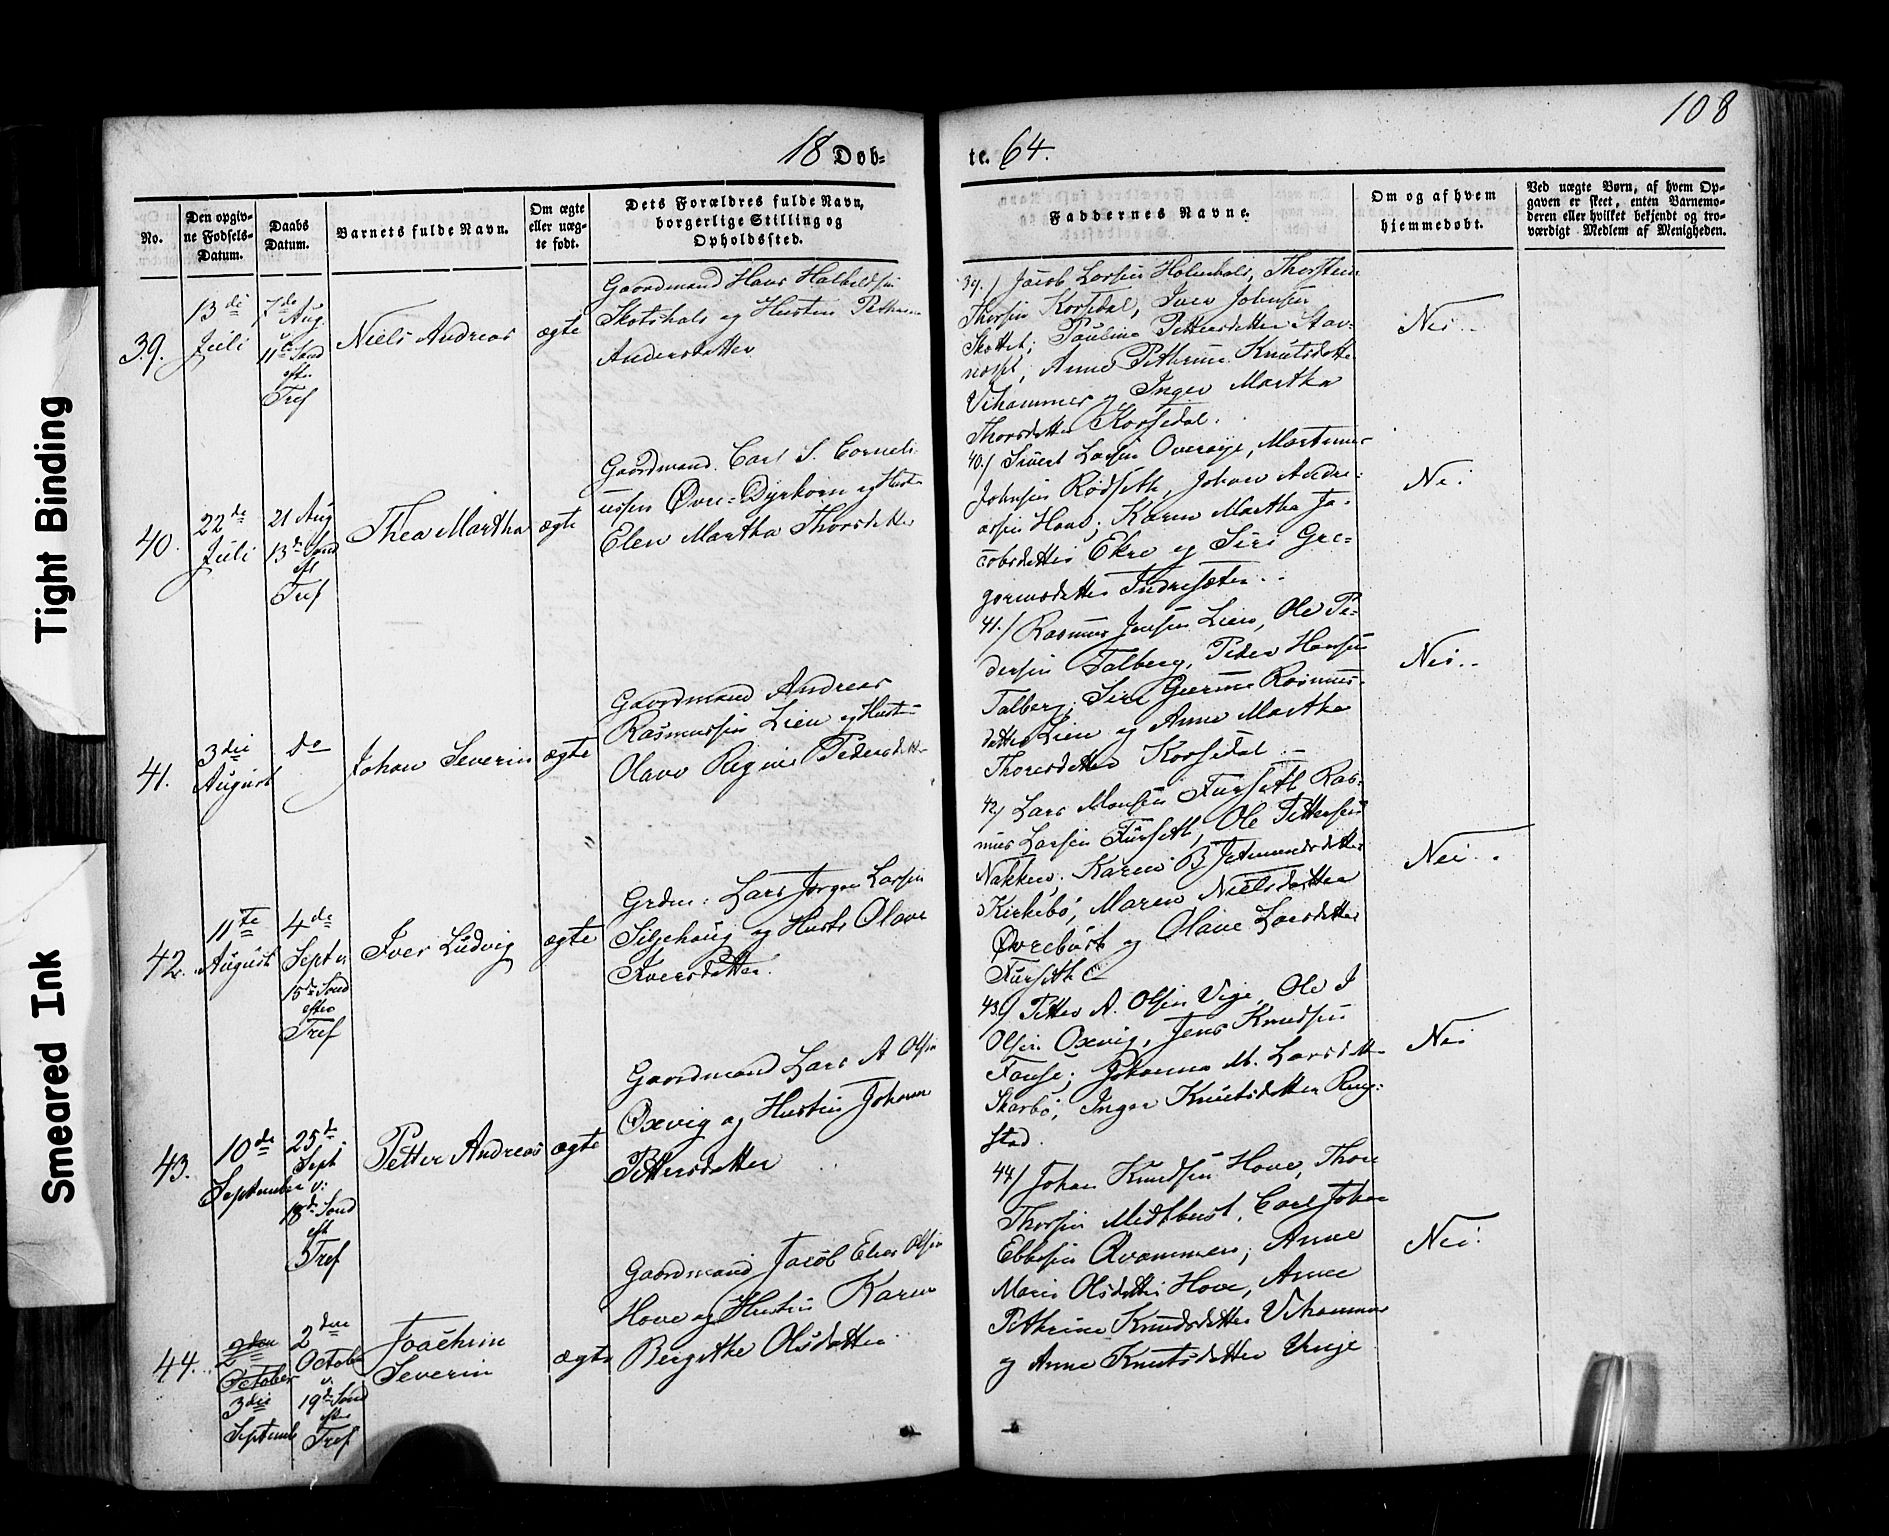 108
18 Døb-
te. 64.
No.
Den opgiv-
ne Fødsels-
Datum.
Daabs
Datum.
Barnets fulde Navn.
Om ægte
eller uæg-
te født.
Dets Forældres fulde Navn,
borgerlige Stilling og
Opholdssted.
Faddernes Navne.
Om og af hvem
hjemmedøbt.
Ved uægte Børn, af hvem Op-
gaven er skeet, enten Barnemo-
deren eller hvilket bekjendt og tro-
værdigt Medlem af Menigheden.
39.
13de
Juli
7de Aug.
v.
11te Sønd
efter
Tref
Niels Andreas
ægte
Gaardmand Hans
Skotshals og Hustru
Andersdatter
39./ Jacob Larsen Holmshols, Thorsten
Thorsen Korsedal, Iver Johnsen
Skottet; Paulina Pettersdatter Stav-
næset, Anne Pethrine Knutsdatter
Vihammer og Inger Martha
Thorsdatter Korsedal.
Nei..
40.
22de
Juli
21 Aug
13de Sønd
eft
Tref
Thea Martha
ægte
Gaardmand Carl S. Corneli-
ussen Øvre-Dyrkorn og Hust
Elen Martha Thorsdatter
40./ Sivert Larsen Overøye, Martinus
Johnsen Rødseth, Johan Andre-
assen Hove; Karen Martha Ja-
cobsdatter Ekre og Siri Gre-
goriusdatter Indresæter..
Nei
41.
3die
August
do
Johan Severin
ægte
Gaardmand Andreas
Rasmussen Lien og Hustru
Olave Regine Pedersdatter
41./ Rasmus Jensen Lien, Ole Pe-
dersen Talberg, Peder Hansen
Talberg; Siri Rasmus-
datter Lien og Anne Martha
Thoresdatter Korsedal.
Nei..
42.
11te
August
4de
Septr
15de Sønd
efter
Tref
Iver Ludvig
ægte
Grdm: Lars Jørgen Larsen
Siljehaug og Hustr Olave
Iversdatter.
42./ Lars Monsen Furseth Ras-
mus Larsen Furseth, Ole Pettersen
Nakken; Karen B
Kirkebø, Maren Nielsdatter
Øvrebust og Olave Larsdatter
Furseth
Nei..
43.
10de
September
25de
Sept
v:
18de Sønd
eft
Tref
Petter Andreas
ægte
Gaardmand Lars A Olsen
Oxvig og Hustru Johanne
Pettersdatter
43./ Petter A. Olsen Vige, Ole I
Olsen Oxvig, Jens Knudsen
Fause; Johanna M. Larsdatter
Skarbø, Inger Knutsdatter Ring-
stad.
Nei
44.
2den
October
3die
Septemb
2den
October
v.
19de Sønd
efter
Tref
Joachim
Severin
ægte
Gaardmand Jacob Elias Olsen
Hove og Hustru Karen
Bergithe Olsdatter
44/ Johan Knudsen Hove, Thore
Thorsen Midtbust, Carl Johan
Ebbesen Qvammen; Anne
Marie Olsdatter Hove, Anne
Pethrine Knudsdatter Vihammer
og Anne Knutsdatter
Nei.
Tight Binding
Smeared Ink